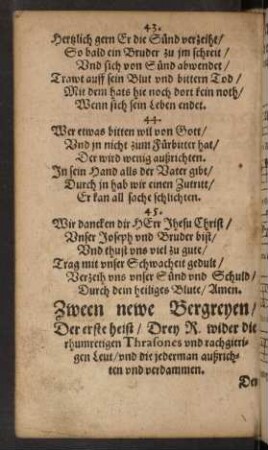 43.
Hertzlich gern Er die Sünd verzeiht/
So bald ein Bruder zu jm schreit/
Vnd sich von Sünd abwendet/
Trawt auff sein Blut vnd bittern Tod/
Mit dem hats hie noch dort kein noth/
Wenn sich sein Leben endet.
44.
Wer etwas bitten wil von Gott/
Vnd jn nicht zum Fürbitter hat/
Der wird wenig außrichten.
In sein Hand alls der Vater gibt/
Durch jn hab wir einen Zutritt/
Er kan all sache schlichten.
45.
Wir dancken dir HErr Jhesu Christ/
Vnser Joseph vnd Bruder bist/
Vnd thust vns viel zu gute/
Trag mit vnser Schwacheit gedult/
Verzeih vns vnser Sünd vnd Schuld/
Durch dein heiliges Blute/ Amen.
Zween newe Bergreyen/
Der erste heist/ Drey R. wider die
rhumretigen Thrasones vnd rachgieri-
gen Leut/ vnd die jederman außrich-
ten vnd verdammen.
Der